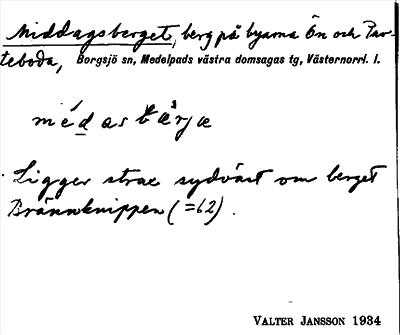 Middagsberget, berg på byarna Ön och Par-
teboda, Borgsjö sn, Medelpads västra domsagas tg, Västernorrl. l.
médasbærjæ
Ligger strax sydväst om berget
Brännknippen (=62).
VALTER JANSSON 1934